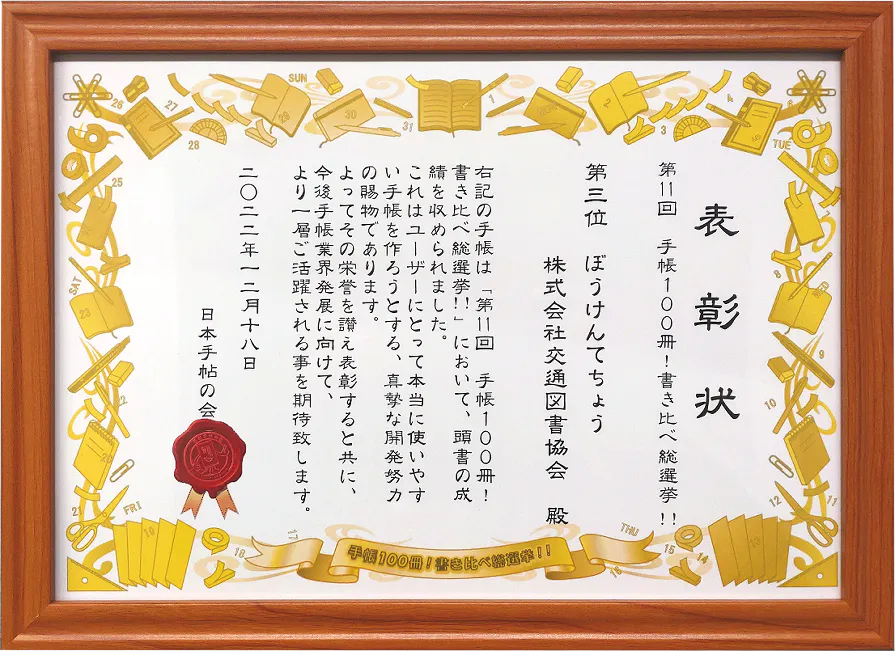 表彰状
第11回 手帳100冊!書き比べ総選挙!!
第三位 ぼうけんてちょう
株式会社交通図書協会 殿
右記の手帳は「第11回 手帳100冊!
書き比べ総選挙!!」において、頭書の成
績を収められました。
これはユーザーにとって本当に使いやす
い手帳を作ろうとする、真摯な開発努力
の賜物であります。
よってその栄誉を讃え表彰すると共に、
今後手帳業界発展に向けて、
より一層ご活躍される事を期待致します。
二〇二二年一二月十八日
日本手帖の会
手帳100冊!書き比べ総選挙!!
SUN
26
27
28
29
30
31
1
2
3
4
5
TUE
25
SAT
23
22
21
FRI
19
18
17
16
THU
15
14
13
12
11
10
9
8